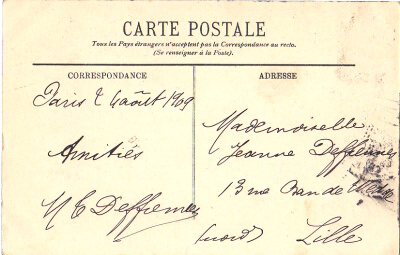 CARTE POSTALE
Tous les Pays étrangers n'acceptent pas la Correspondance au recto.
(Se renseigner à la Poste).
CORRESPONDANCE
Paris 2 4 août 1909
Amitiés
M E Deffrennes
ADRESSE
Mademoiselle
Jeanne Deffrennes
13 rue Ban de Wedde
Lille
(nord)